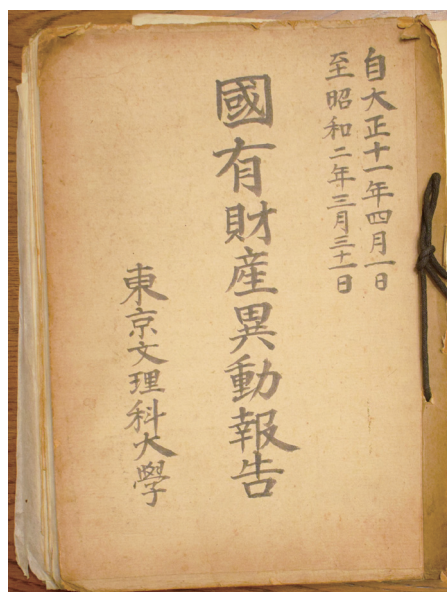 自大正十一年四月一日
至昭和二年三月三十一日
國有財産異動報告
東京文理科大學